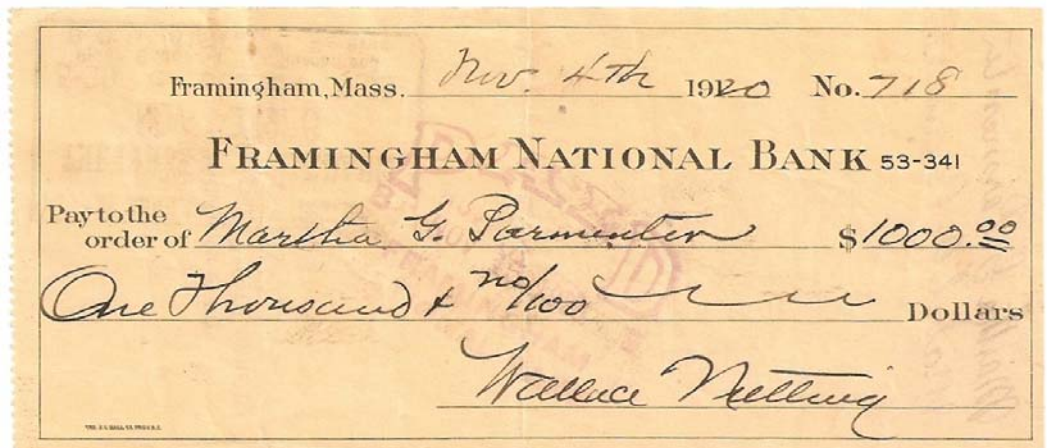 Framingham, Mass. Nov. 4th 1920 No. 718
FRAMINGHAM NATIONAL BANK 53-341
Pay to the order of Martha G. Parmenter $1000.00
One Thousand & no/100 Dollars
Wallace Nutting